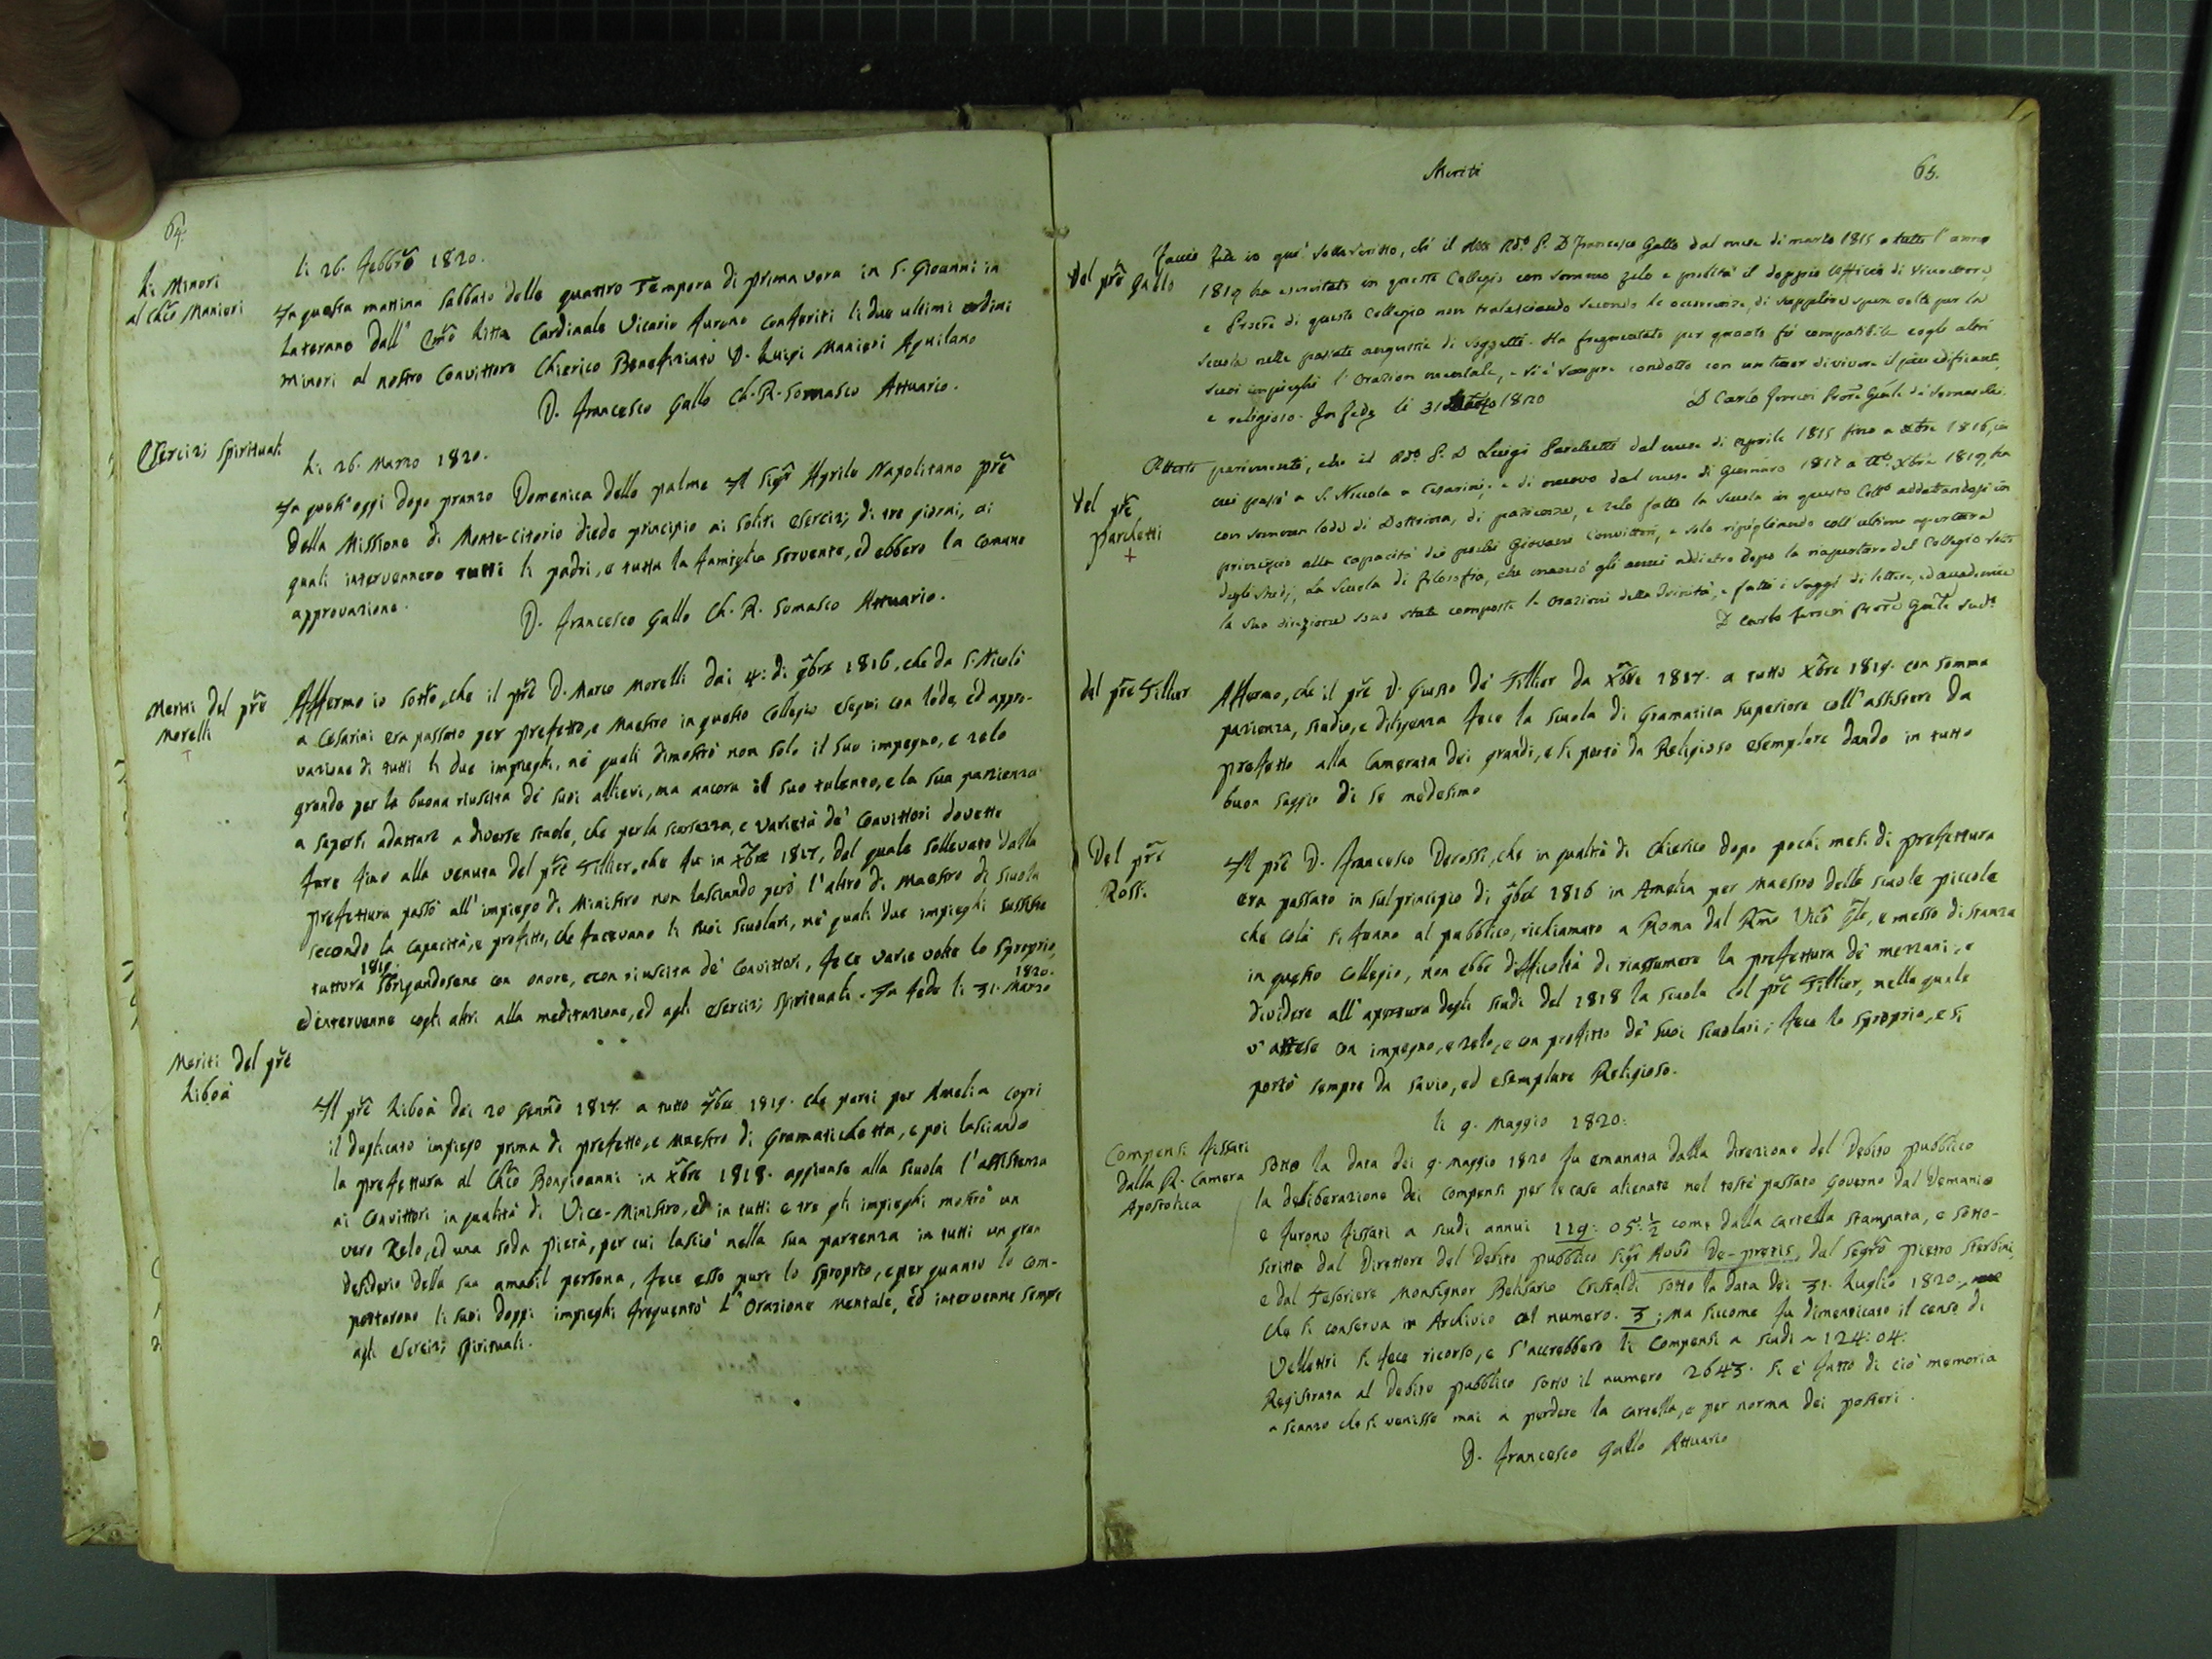 64.
Li Minori
al Chco Manieri
li 26. Febbro 1820.
In questa mattina sabbato delle quattro Tempora di primavera in S. Giovanni in
Laterano dall' Emo Litta Cardinale Vicario furono conferiti li due ultimi ordini
minori al nostro Convittore Chierico Benefiziato D. Luigi Manieri Aquilano
D. Francesco Gallo Ch. R. Somasco Attuario.
Esercizj Spirituali
Li 26. Marzo 1820.
In quest'oggi dopo pranzo Domenica delle palme Il Sigr Aprile Napolitano pre
della Missione di Monte-citorio diede principio ai soliti esercizj di tre giorni, ai
quali intervennero tutti li padri, e tutta la famiglia servente, ed ebbero la comune
approvazione.
D. Francesco Gallo Ch. R. Somasco Attuario.
Meriti del pre
Morelli
+
Affermo io sotto, che il pre D. Marco Morelli dai 4: di 9bre 1816, che da S. Nicolò
a Cesarini era passato per prefetto, e Maestro in questo Collegio eseguì con lode, ed appro-
vazione di tutti li due impieghi, nè quali dimostrò non solo il suo impegno, e zelo
grande per la buona riuscita de' suoi allievi, ma ancora il suo talento, e la sua pazienza
a sapersi adattare a diverse scuole, che per la scarsezza, e varietà de' Convittori dovette
fare fino alla venuta del pre Tillier, che fu in Xbre 1817, dal quale sollevato dalla
prefettura passò all' impiego di Ministro non lasciando però l'altro di Maestro di scuola
secondo la capacità, e profitto, che facevano li suoi scuolari, ne' quali due impieghi sussiste
1819.
tuttora sbrigandosene con onore, e con riuscita de' Convittori, fece varie volte lo sproprio,
1820.
ed intervenne cogli altri alla meditazione, ed agli esercizj spirituali. In fede li 31. Marzo
Meriti del pre
Liboà
Il pre Liboà dai 20 Genno 1817. a tutto 9bre 1819. che partì per Amelia coprì
il duplicato impiego prima di prefetto, e Maestro di Gramatichetta, e poi lasciando
la prefettura al Chco Bongioanni in Xbre 1818. aggiunse alla scuola l'assistenza
ai Convittori in qualità di Vice-Ministro, ed in tutti e tre gli impieghi mostrò un
vero zelo, ed una soda pietà, per cui lasciò nella sua partenza in tutti un gran
desiderio della sua amabil persona, fece esso pure lo sproprio, e per quanto lo com-
portarono li suoi doppi impieghi frequentò l'Orazione mentale, ed intervenne sempre
agli esercizj spirituali.
Meriti
65.
Del pre Gallo
Faccio fede io quì sottoscritto, chè il Rdo P. D Francesco Gallo dal mese di marzo 1815 a tutto l'anno
1819 ha esercitato in questo Collegio con sommo zelo e pulità il doppio Officio di Vicerettore,
e Procre di questo Collegio non tralasciando secondo le occorrenze, di supplire spesse volte per la
scuola nelle passate angustie di soggetti. Ha frequentato per quanto fù compatibile cogli altri
suoi impieghi l'Orazion mentale, e si è sempre condotto con un tenor di vivere il più edificante,
e religioso. In fede li 31 1820
D Carlo Ferreri Procre Gnle de' Somaschi.
Del pre
Parchetti
+
Attesto parimenti, che il Rdo P. D Luigi Parchetti dal mese di Aprile 1815 fino a 1816, in
cui passò a S. Niccola a Cesarini; e di nuovo dal mese di Gennaro 1817 a tto Xbre 1819, ha
con somma lode di Dottrina, di pazienza, e zelo fatto la scuola in questo Collo addattandosi in
principio alla capacità dei pochi Giovani Convittori, e solo ripigliando coll'ultima apertura
degli studj, la scuola di filosofia, che gli anni addietro dopo la riapertura del Collegio sotto
la sua direzione sono state composte le Orazioni della Trinità, e fatti i saggi di lettere, ed accademie
D Carlo Ferreri Procre Gnle sudo
del pre Tillier
Affermo, che il pre D. Giusto de' Tillier da Xbre 1817. a tutto Xbre 1819. con somma
pazienza, studio, e diligenza fece la scuola di Gramatica superiore coll'assistere da
prefetto alla Camerata dei grandi, e si portò da Religioso esemplare dando in tutto
buon saggio di se medesimo
Del pre
Rossi.
Il pre D. Francesco Derossi, che in qualità di Chierico dopo pochi mesi di prefettura
era passato in sul principio di 9bre 1816 in Amelia per Maestro delle scuole piccole
che colà si fanno al pubblico, richiamato a Roma dal Rmo Vico Gle, e messo di stanza
in questo Collegio, non ebbe difficoltà di riassumere la prefettura de' mezzani, e
dividere all' apertura degli studi del 1818 la scuola col pre Tillier, nella quale
v'attese con impegno, e zelo, e con profitto de' suoi scuolari; fece lo sproprio, e si
portò sempre da savio, ed esemplare Religioso.
li 9. Maggio 1820.
Compensi fissati
dalla R. Camera
Apostolica
Sotto la data dei 9. Maggio 1820 fu emanata dalla direzione del Debito pubblico
la deliberazione dei compensi per le case alienate nel testè passato Governo dal Demanio
e furono fissati a scudi annui 119: 05. 1/2 come dalla cartella stampata, e sotto-
scritta dal Direttore del Debito pubblico Sigr De-pretis, dal Segro Pietro Sterbini,
e dal Tesoriere Monsignor Belisario Cristaldi sotto la data dei 31. Luglio 1820.,
che si conserva in Archivio al numero. 3; ma siccome fu dimenticato il censo di
Velletri si fece ricorso, e s'accrebbero li Compensi a scudi ~ 124: 04.
Registrata al Debito pubblico sotto il numero 2643. Si è fatto di ciò memoria
a scanzo che si venisse mai a perdere la cartella, e per norma dei posteri.
D. Francesco Gallo Attuario